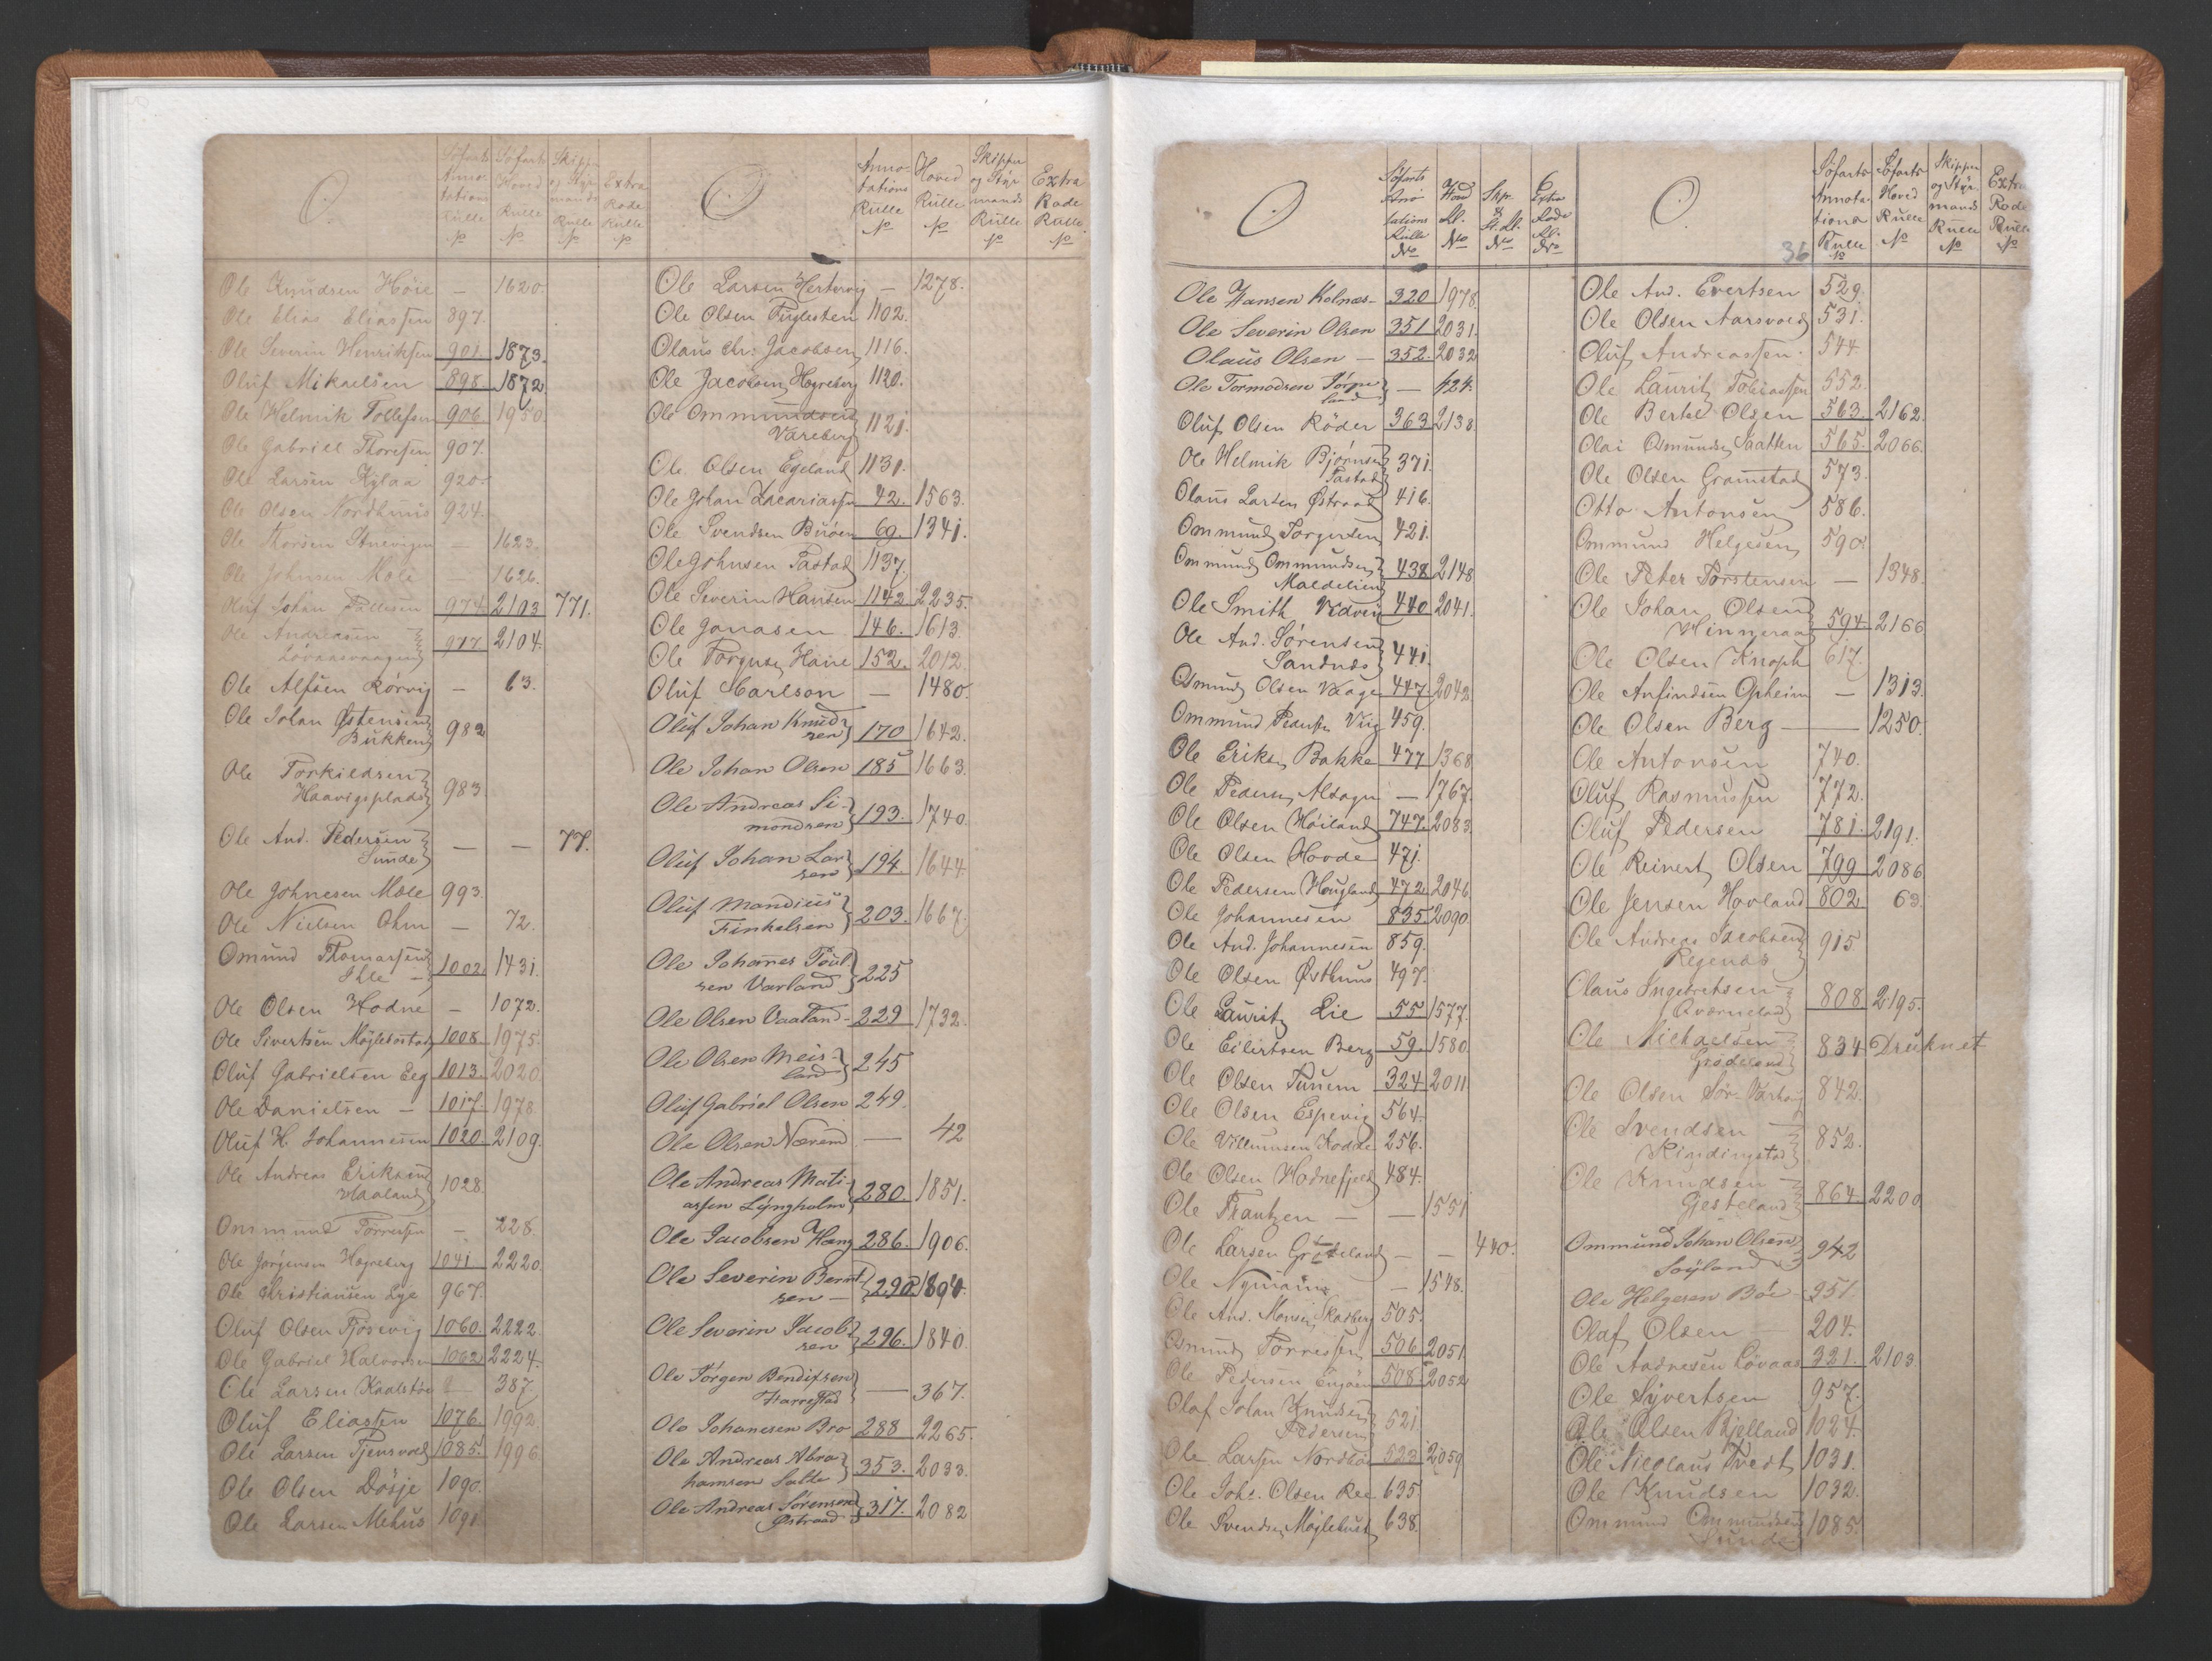 O.
Søfarts Annotations Rulle No
Søfarts Hoved Rulle No
Skipper og Styrmands Rulle No
Extra Rode Rulle No
Ole Knudsen Høie — 1620
Ole Elias Eliassen 897.
Ole Severin Henriksen 901. 1873.
Oluf Mikaelsen 898 1872
Ole Helmik Tollefsen 906 1950
Ole Gabriel Thoresen 907.
Ole Larsen Kylaa 920.
Ole Olsen Nordhuus 924.
Ole Thorsen — 1623.
Ole Johnsen Mæle 1626.
Oluf Johan Tollesen 974 2103 771.
Ole Andreasen
977 2104.
Ole Alfsen Rørvig — 63.
Ole Johan Østensen
Bukken 982
Ole Torkildsen
Haavigsplads 983
Ole And. Pedersen
Sunde — — 77.
Ole Johnesen Mæle 993.
Ole Nielsen Ohm — 72.
Omund Thomassen
Ihle — 1002. 1431.
Ole Olsen Hodne — 1072.
Ole Sivertsen Møglebostad 1008. 1975.
Oluf Gabrielsen Eeg 1013. 2020
Ole Danielsen — 1017. 1978
Oluf H. Johannesen 1020 2109.
Ole Andreas Eriksen
Haaland 1028.
Ommund Torresen — 228.
Ole Jørgensen Høgreberg 1041 2220.
Ole Kristiansen Lye 967.
Oluf Olsen Tjøsevig 1060. 2222.
Ole Gabriel Halvorsen 1062 2224.
Ole Larsen Kaalstøe — 387
Oluf Eliassen 1076. 1992.
Ole Larsen Tjensvold 1085. 1996
Ole Olsen Døsje 1090.
Ole Larsen Mehus 1091
O
Annotations Rulle No
Hoved Rulle No
Skipper og Styrmands Rulle No
Extra Rode Rulle No
Ole Larsen Hertervig — 1278.
Ole Olsen Fuglesten 1102.
Olaus Chr. Jacobsen 1116.
Ole Jacobsen Høgreberg 1120.
Ole Ommundsen
Vareberg 1121.
Ole Olsen Egeland 1131.
Ole Johan Zacariassen 42. 1563.
Ole Svendsen Buøen 69. 1341.
Ole Johnsen Tastad 1137
Ole Severin Hansen 1142 2235.
Ole Jonasen 146. 1613.
Ole Torgersen Haire 152. 2012.
Oluf Carlson — 1480.
Oluf Johan Knud-
sen 170 1642.
Ole Johan Olsen 185 1663.
Ole Andreas Si-
mondsen 193. 1740.
Oluf Johan Lar-
sen 194. 1644.
Oluf Mandius
Finkelsen 203. 1667.
Ole Johanes Poul-
sen Varland 225
Ole Olsen Vaaland — 229 1732.
Ole Olsen Meis-
land 245
Oluf Gabriel Olsen 249.
Ole Olsen Nærem — 42
Ole Andreas Mati-
assen Lyngholm 280 1851.
Ole Jacobsen Haug 286. 1906.
Ole Severin Bernt-
sen — 290. 1890.
Ole Severin Jacob-
sen 296. 1840.
Ole Jørgen Bendixsen
Harrestad — 367.
Ole Johanesen Bro 288 2265.
Ole Andreas Abra-
hamsen Salte 353. 2033.
Ole Andreas Sørensen
Østraad 317. 2082
O
Søfarts Annotations Rulle No
Hoved Rl. No
Skp. & St. Rl. No
Extra Rode Rl. No
Ole Hansen Kolnes — 320 1978.
Ole Severin Olsen 351 2031.
Olaus Olsen — 352. 2032
Ole Tormodsen Tørge-
land — 424.
Oluf Olsen Røder 363 2138.
Ole Helmik Bjørnsen
Tastad 371.
Olaus Larsen Østraad 416.
Ommund Torgersen 421.
Ommund Ommundsen
Maldelien 438 2148
Ole Smith Vedvig 440 2041.
Ole And. Sørensen
Sandnæs 441.
Osmund Olsen Vaage 447. 2042
Ommund Pedersen Viig 459.
Ole Eriksen Bakke 477 1368
Ole Pedersen Alsagr — 1767.
Ole Olsen Høiland 747. 2083.
Ole Olsen Hovde 471.
Ole Pedersen Hougland 472 2046
Ole Johannesen 835. 2090.
Ole And. Johannesen 859.
Ole Olsen Østhuus 497.
Ole Lauritz Lie 55 1577.
Ole Eilertsen Berg 59. 1580.
Ole Olsen Tunem 324 2011
Ole Olsen Espevig 564.
Ole Villumsen Hodde 256.
Ole Olsen Hodnefjeld 484.
Ole Frantzen — — 1551
Ole Larsen — — 440.
Ole Nymann — 1548.
Ole And. Monsen Skadberg 505.
Osmund Torressen 506 2051
Ole Pedersen Engøen 508. 2052
Olaf Johan Knudsen
Pedersen 521.
Ole Larsen Nordbø 523 2059
Ole Johs. Olsen Ree 635.
Ole Svendsen Møglebust 638.
O.
36
Søfarts Annotations Rulle No
Søfarts Hoved Rulle No
Skipper og Styrmands Rulle No
Extra Rode Rulle No
Ole And. Evertsen 529.
Ole Olsen Aarsvold 531.
Oluf Andreassen. 544.
Ole Lauritz Tobiassen 552.
Ole Bertel Olsen 563. 2162.
Olai Osmundsen Saatten 565. 2066.
Ole Olsen Gramstad 573.
Otto Antonsen 586.
Ommund Helgesen 590.
Ole Peter Torstensen — 1348.
Ole Johan Olsen
Vinneraa 594. 2166
Ole Olsen Knoph 617.
Ole Anfindsen Opheim — 1313.
Ole Olsen Berg — — 1250.
Ole Antonsen 740.
Oluf Rasmussen 772.
Oluf Pedersen 781. 2191.
Ole Reinert Olsen 799 2086
Ole Jensen Hovland 802 63.
Ole Andreas Jacobsen
Regenæs 915
Olaus Ingebretsen
Qværneland 808. 2195.
Ole Michaelsen
Grødeland 834 Druknet
Ole Olsen Sør-Varhoug 842.
Ole Svendsen
Ringdingstad 852.
Ole Knudsen
Gjesteland 864. 2200
Ommund Johan Olsen
Soyland 942
Ole Helgesen Bøe 951.
Olaf Olsen 204.
Ole Andresen Løvaas 321. 2103
Ole Syvertsen 957.
Ole Olsen Bjelland 1024.
Ole Nicolaus Tvedt 1031.
Ole Knudsen 1032.
Ommund Ommundsen
Sunde 1085.